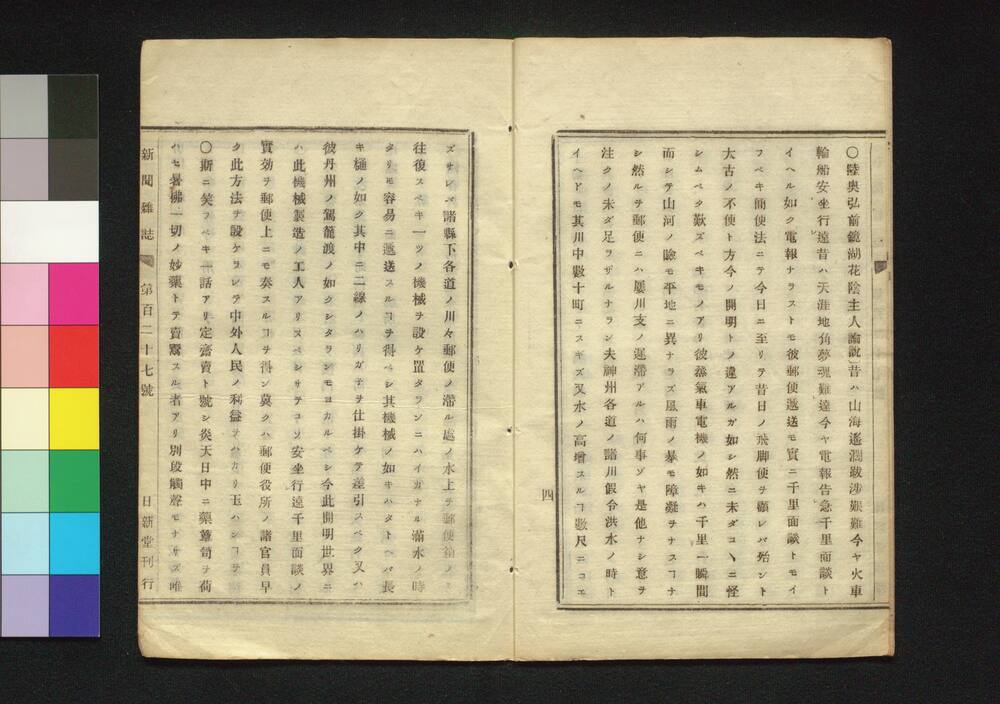 〇陸奥弘前鏡湖花陰主人論說昔ハ山海遙濶跋涉艱難今ヤ火車
輪船安坐行遠昔ハ天涯地角夢魂難達今ヤ電報告急千里面談ト
イヘル如ク電報ナラストモ彼郵便遞送モ實ニ千里面談トモイ
フベキ簡便法ニテ今日ニ至リテ昔日ノ飛脚便ヲ顧レバ殆ント
太古ノ不便ト方今ノ開明トノ違アルガ如シ然ニ未ダコヽニ怪
シムベク歎ズベキモノアリ彼蒸氣車電機ノ如キハ千里一瞬間
而シテ山河ノ險モ平地ニ異ナラズ風雨ノ暴モ障礙ヲナスヿナ
シ然ルヲ郵便ニハ屢川支ノ遲滯アルハ何事ゾヤ是他ナシ意ヲ
注クノ未ダ足ラザルナラン夫神州各道ノ諸川假令洪水ノ時ト
イヘドモ其川中數十町ニスギズ又水ノ高增スルヿ數尺ニコエ
四
ズサレバ諸縣下各道ノ川々郵便ノ滯ル處ノ水上ヲ郵便箱ノミ
往復スベキ一ツノ機械ヲ設ケ置タランニハイカナル滿水ノ時
タリモ容易ニ遞送スルヿヲ得ベシ其機械ノ如キハタトヘバ長
キ樋ノ如ク其中ニ二線ノハリガネヲ仕掛ケテ差引スベク又ハ
彼丹州ノ駕籠渡ノ如クシタランモヨカルベシ今此開明世界ニ
ハ此機械製造ノ工人アリヌベシサテコソ安坐行遠千里面談ノ
實効ヲ郵便上ニモ奏スルヿヲ得ン冀クハ郵便役所ノ諸官員早
ク此方法ヲ設ケラレテ中外人民ノ利益ヲハカリ玉ハンヿヲ
〇斯ニ笑フベキ一話アリ定齋賣ト號シ炎天日中ニ藥簞笥ヲ荷
ハセ暑拂一切ノ妙藥トテ賣鬻スル者アリ別段觸聲モナサズ唯
新聞雜誌 第百二十七號 日新堂刊行